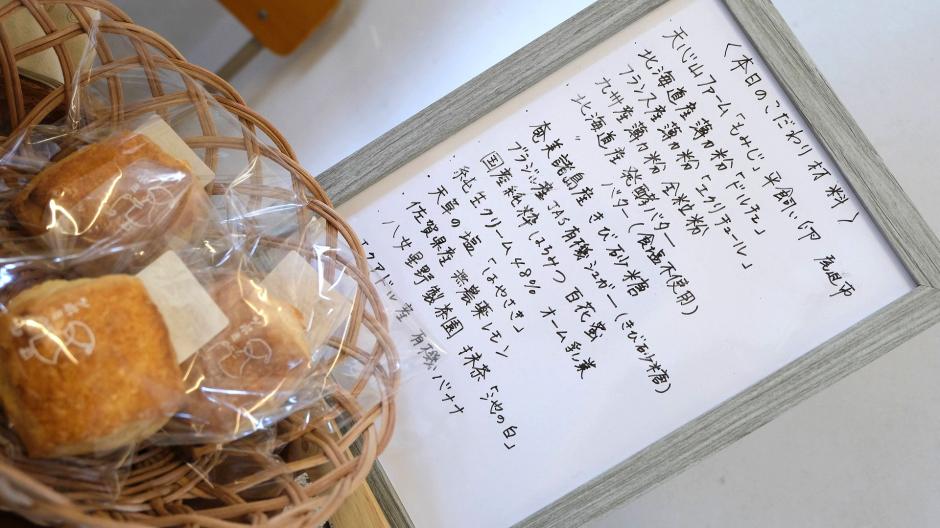 〈本日のこだわり材料〉
天心山ファーム「もみじ」平飼い卵 鹿追市
北海道産 薄力粉「ドルチェ」
フランス産 薄力粉「エクリチュール」
九州産 薄力粉 全粒粉
北海道産 発酵バター
〃 バター(食塩不使用)
奄美諸島産 きび砂糖
ブラジル産 JAS有機シュガー(きび砂糖)
国産純粋はちみつ 百花蜜
純生クリーム48% オーム乳業
天草の塩「はやさき」
佐賀県産 無農薬レモン
八女星野製茶園 抹茶「池の白」
エクアドル産 有機バナナ